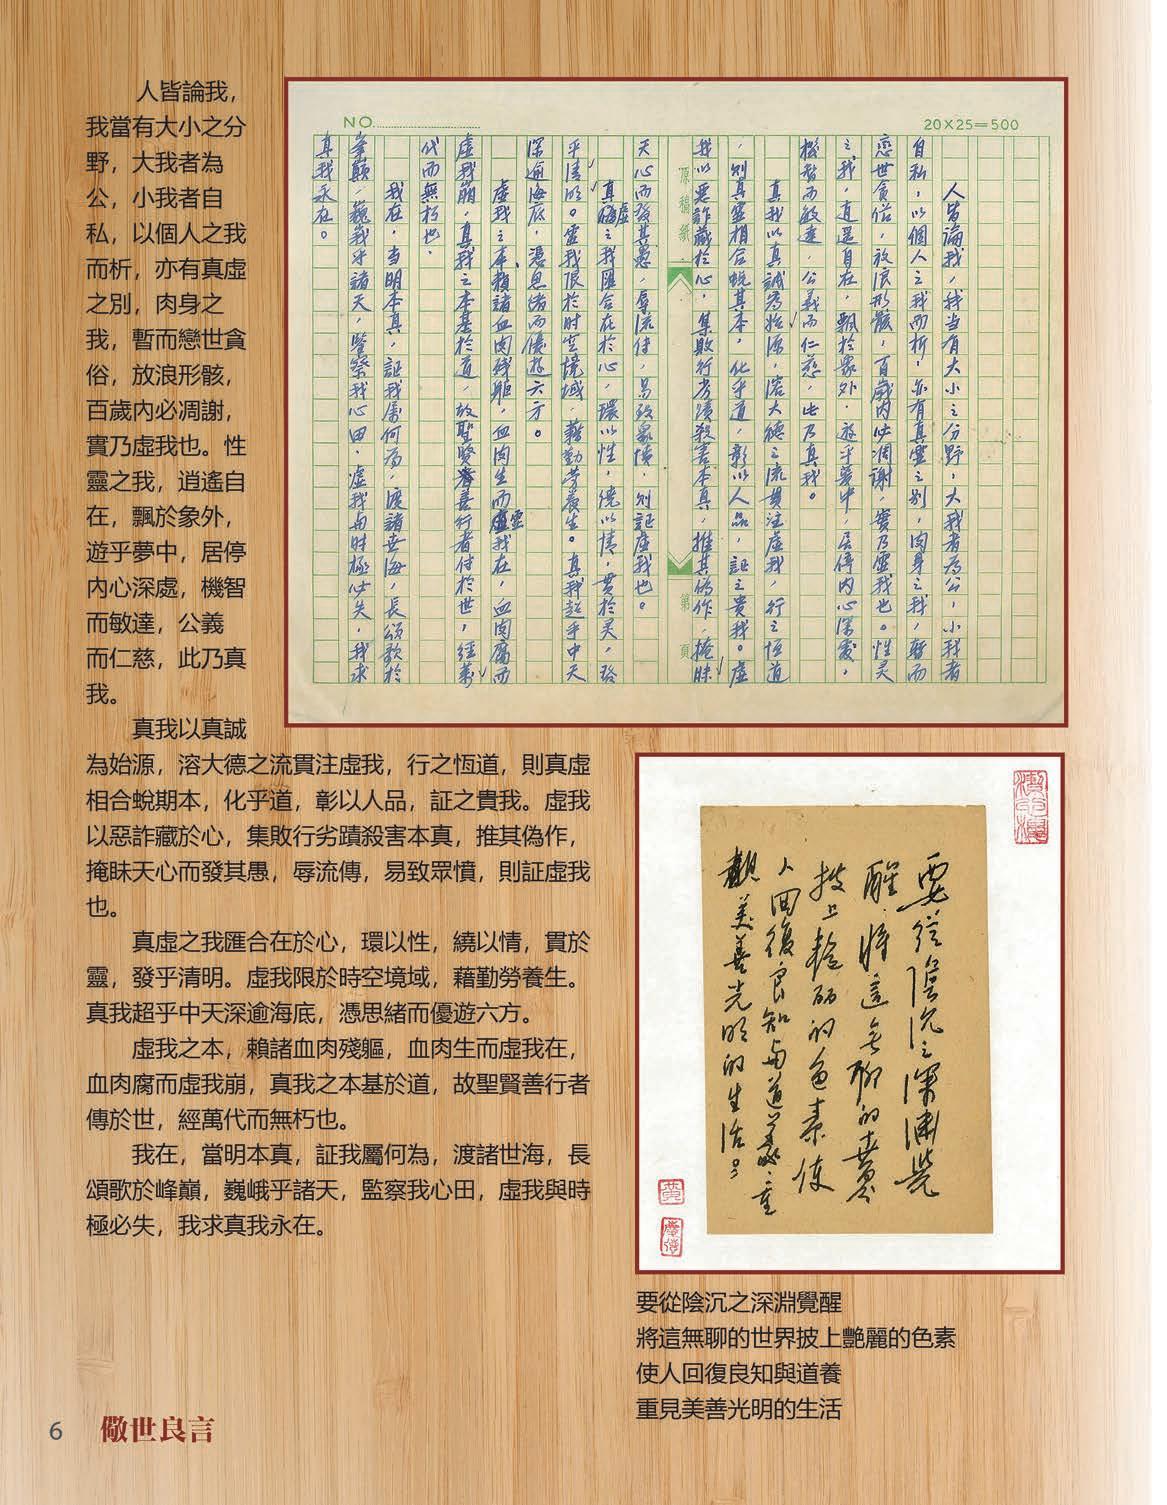 人皆論我，
我當有大小之分
野，大我者為
公，小我者自
私，以個人之我
而析，亦有真虛
之別，肉身之
我，暫而戀世貪
俗，放浪形骸，
百歲內必凋謝，
實乃虛我也。性
靈之我，逍遙自
在，飄於象外，
遊乎夢中，居停
內心深處，機智
而敏達，公義
而仁慈，此乃真
我。
真我以真誠
為始源，溶大德之流貫注虛我，行之恆道，則真虛
相合蛻期本，化乎道，彰以人品，証之貴我。虛我
以惡詐藏於心，集敗行劣蹟殺害本真，推其偽作，
掩昧天心而發其愚，辱流傳，易致眾憤，則証虛我
也。
真虛之我匯合在於心，環以性，繞以情，貫於
靈，發乎清明。虛我限於時空境域，藉勤勞養生。
真我超乎中天深逾海底，憑思緒而優遊六方。
虛我之本，賴諸血肉殘軀，血肉生而虛我在，
血肉腐而虛我崩，真我之本基於道，故聖賢善行者
傳於世，經萬代而無朽也。
我在，當明本真，証我屬何為，渡諸世海，長
頌歌於峰巔，巍峨乎諸天，監察我心田，虛我與時
極必失，我求真我永在。
NO.
20×25=500
人皆論我，我当有大小之分野，大我者為公，小我者
自私，以個人之我而析，亦有真虛之别，肉身之我，暫而
恋世貪俗，放浪形骸，百歲内必凋謝，實乃虛我也。性灵
之我，逍遥自在，飄於象外，遊乎夢中，居停内心深處，
機智而敏達，公義而仁慈，此乃真我。
真我以真誠為始源，溶大德之流貫注虛我，行之恒道
，则真虛相合蜕其本，化乎道，彰以人品，証之貴我。虛
原稿紙
第 頁
我以惡詐藏於心，集敗行劣蹟殺害本真，推其偽作，掩昧
天心而發其愚，辱流传，易致眾憤，则証虛我也。
真虛之我匯合在於心，環以性，繞以情，貫於灵，發
乎清明。虛我限於时空境域，藉勤劳養生。真我超乎中天
深逾海底，憑思绪而優遊六方。
虛我之本，賴諸血肉殘軀，血肉生而虛我在，血肉腐而
虛我崩，真我之本基於道，故聖賢善行者传於世，經萬
代而無朽也．
我在，当明本真，証我屬何為，渡諸世海，長頌歌於
峯巔，巍峨乎諸天，監察我心田，虛我与时極必失，我求
真我永在。
要從陰沉之深淵覺
醒，將這無聊的世界
披上艷丽的色素使
人回復良知与道義，重
觀美善光明的生活。
要從陰沉之深淵覺醒
將這無聊的世界披上艷麗的色素
使人回復良知與道養
重見美善光明的生活
6 儆世良言